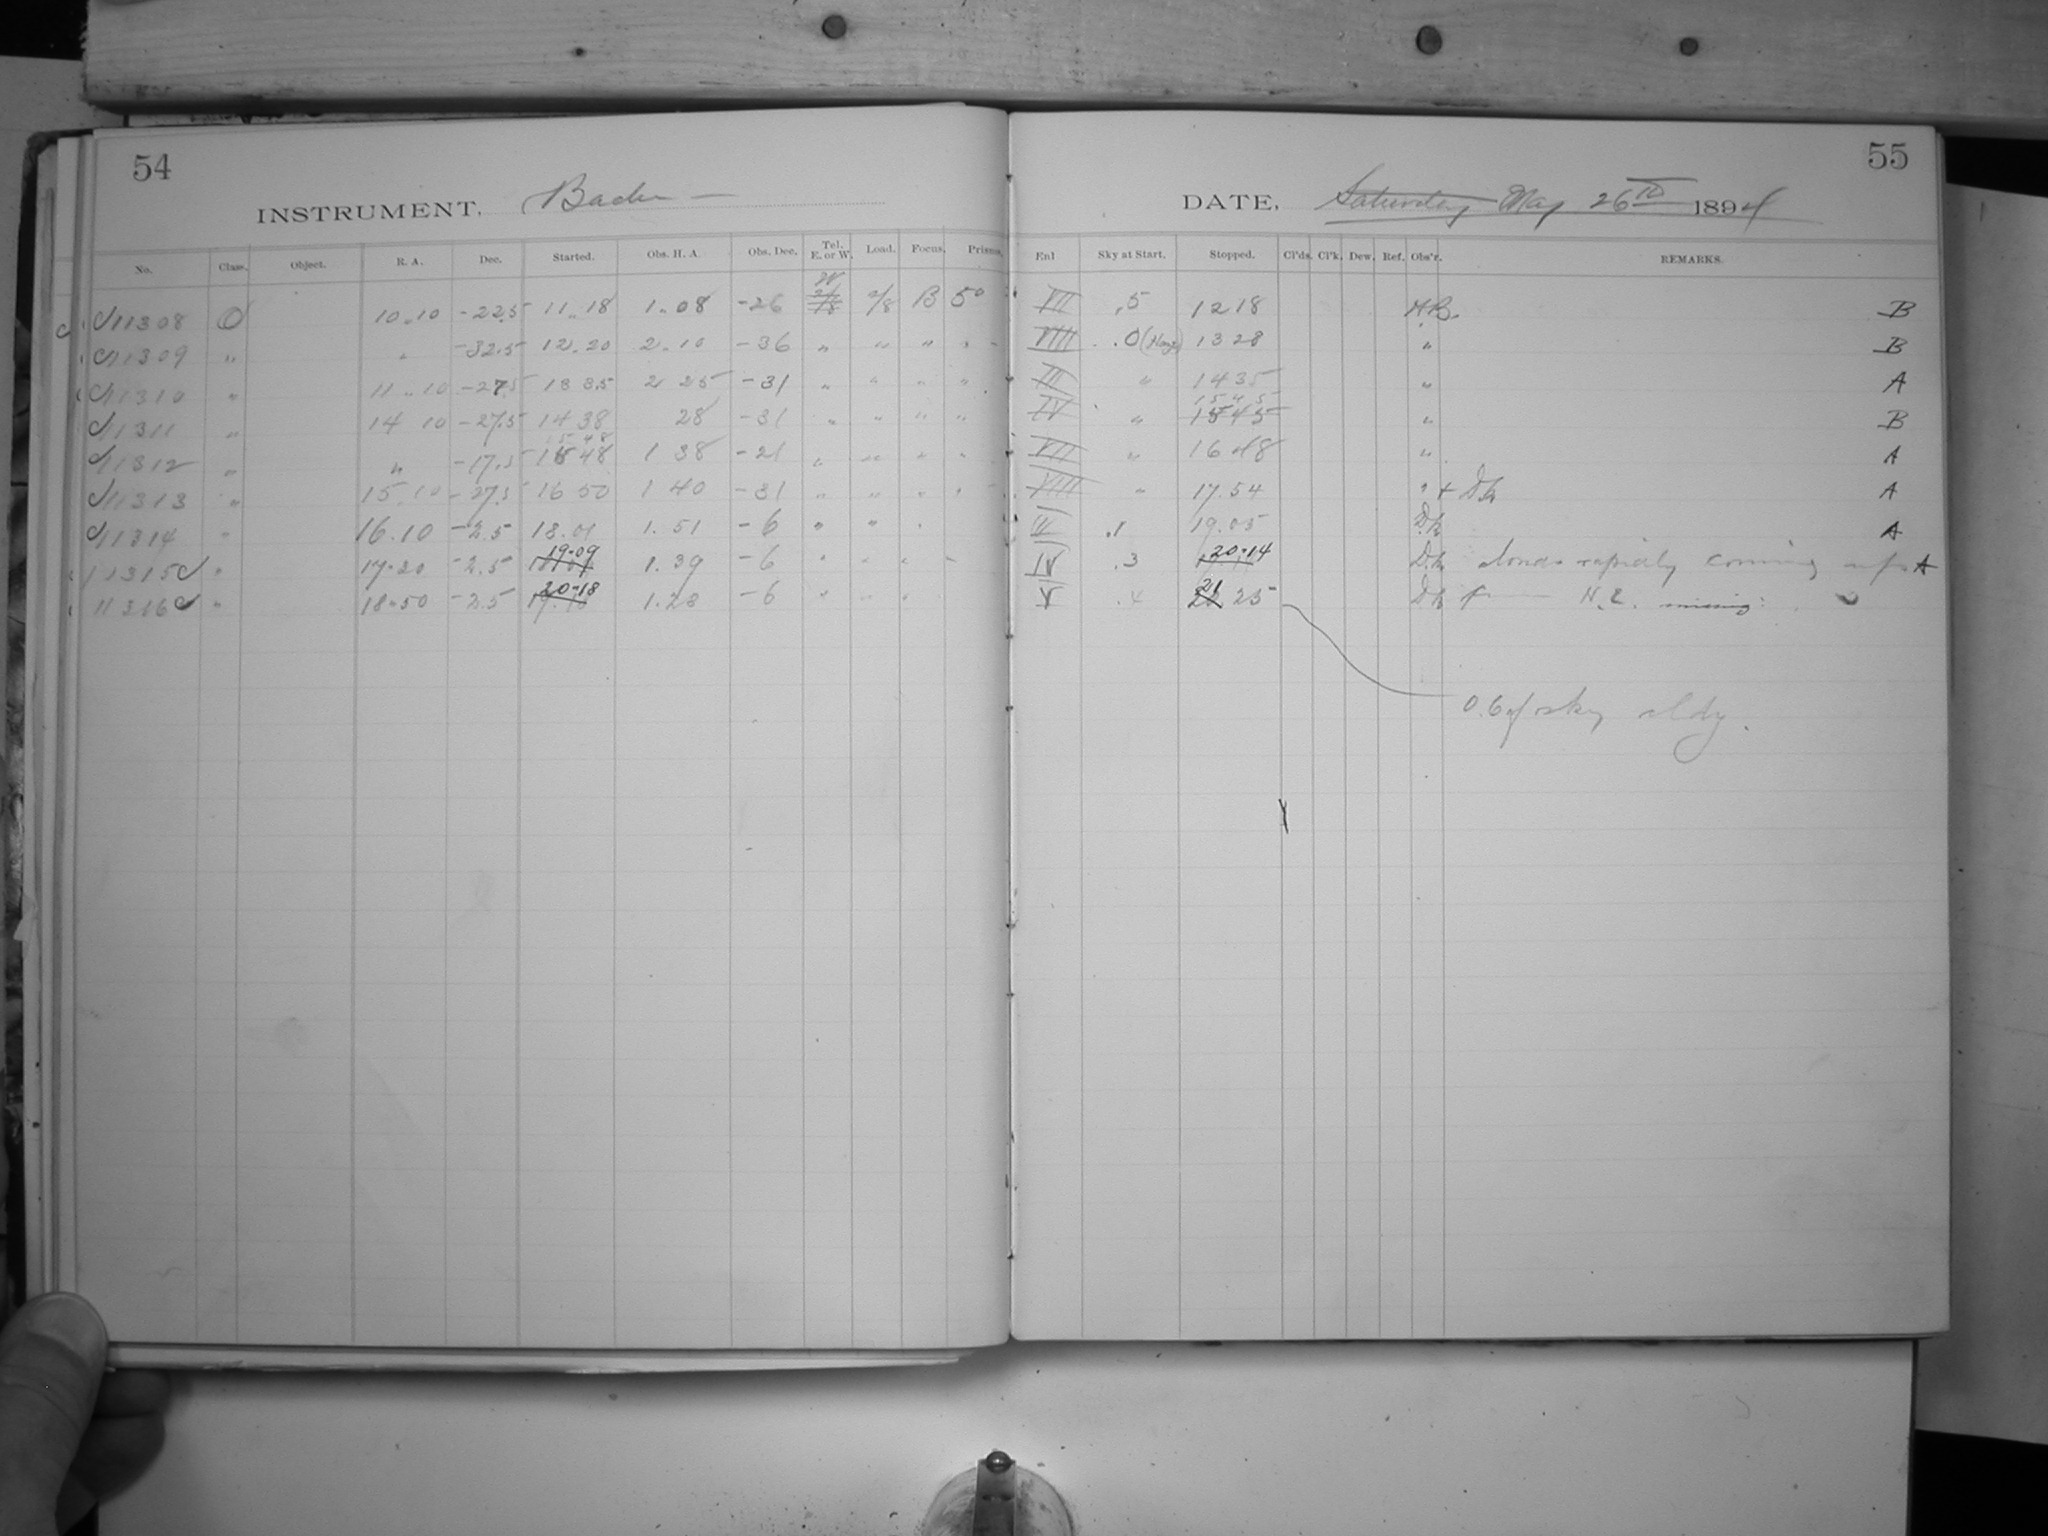 54
INSTRUMENT, Bache —
No. Class. Object. R. A. Dec. Started. Obs. H. A. Obs. Dec. Tel. E. or W. Load. Focus. Prisms.
11308 O 10 10 -22.5 11 18 1 08 -26 W 2/8 B 50
11309 " " -32.5 12 20 2 10 -36 " " " "
11310 " 11 10 -27.5 13 35 2 25 -31 " " " "
11311 " 14 10 -27.5 14 38 28 -31 " " " "
11312 " " -17.5 15 48 1 38 -21 " " " "
11313 " 15 10 -27.5 16 50 1 40 -31 " " " "
11314 " 16.10 -2.5 18.01 1.51 -6 " " "
11315 " 17.20 -2.5 19.09 1.39 -6 " " " "
11316 " 18.50 -2.5 20.18 1.28 -6 " " "
55
DATE, Saturday May 26th 1894
Enl Sky at Start. Stopped. Cl'ds. Cl'k. Dew. Ref. Obs'r. REMARKS.
VII .5 12 18 H.B. B
VIII .0 (Hazy) 13 28 " B
III " 14 35 " A
IV " 15 45 15 45 " B
VII " 16 48 " A
VIII " 17.54 " + Dk A
III .1 19.05 Dk A
IV .3 20.14 Dk clouds rapidly coming up A
V .4 21 25 Dk f—— N.E. missing
0.6 of sky cldy.